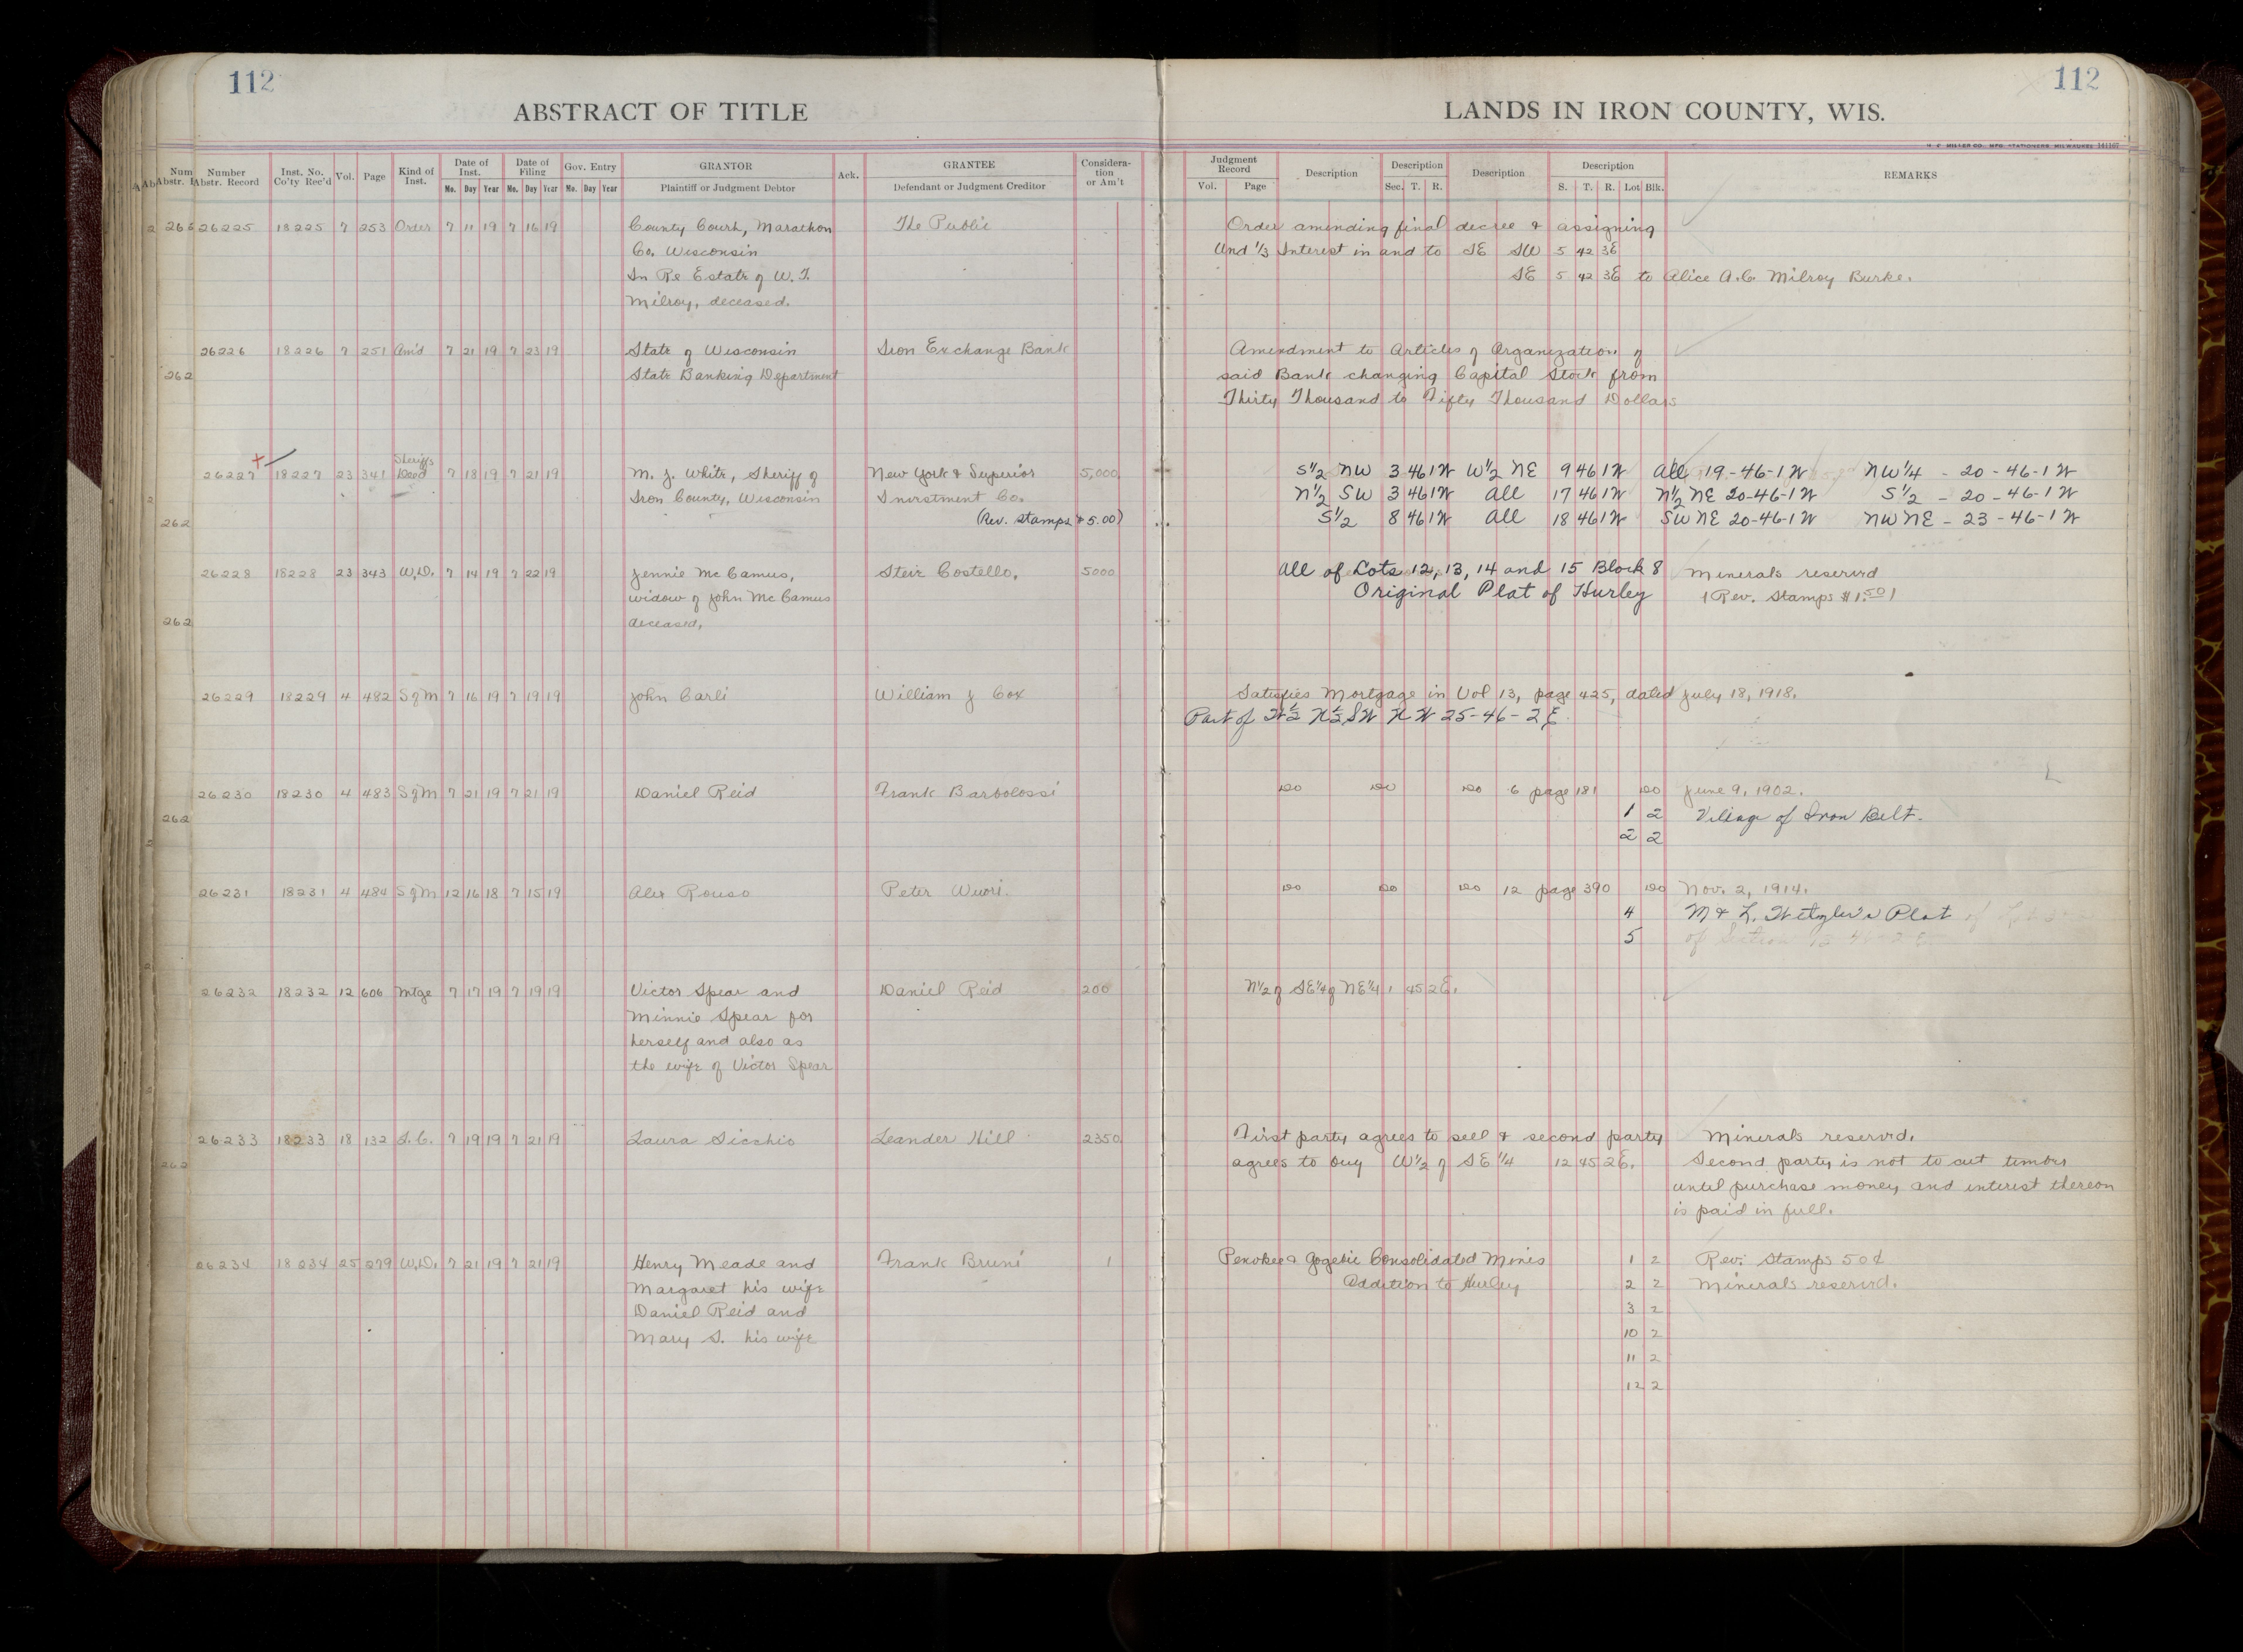 112
112
ABSTRACT OF TITLE
LANDS IN IRON COUNTY, WIS.
H. C. MILLER CO. MFG. STATIONERS MILWAUKEE 141167
Number Abstr. Record Inst. No. Co'ty Rec'd Vol. Page Kind of Inst. Date of Inst. Date of Filing Gov. Entry GRANTOR Ack. GRANTEE Considera-tion or Am't Judgment Record Description Description Description Description REMARKS
Mo. Day Year Mo. Day Year Mo. Day Year Plaintiff or Judgment Debtor Defendant or Judgment Creditor Vol. Page Sec. T. R. S. T. R. Lot Blk.
26225 18225 7 253 Order 7 11 19 7 16 19 County Court, Marathon The Public Order amending final decree & assigning
Co. Wisconsin Und 1/3 Interest in and to SE SW 5 42 3E
In Re Estate of W. T. SE 5 42 3E to Alice A. C. Milroy Burke.
Milroy, deceased.
26226 18226 7 251 Am'd 7 21 19 7 23 19 State of Wisconsin Iron Exchange Bank Amendment to Articles of Organization of
State Banking Department said Bank changing Capital Stock from
Thirty Thousand to Fifty Thousand Dollars
Sheriffs
26227 18227 23 341 Deed 7 18 19 7 21 19 M. J. White, Sheriff of New York & Superior 5,000 S1/2 NW 3 46 1W W1/2 NE 9 46 1W All 19-46-1W NW1/4 - 20-46-1W
Iron County, Wisconsin Investment Co. N1/2 SW 3 46 1W All 17 46 1W N1/2 NE 20-46-1W S1/2 - 20-46-1W
(Rev. Stamps $5.00) S1/2 8 46 1W All 18 46 1W SW NE 20-46-1W NW NE - 23-46-1W
26228 18228 23 343 W.D. 7 14 19 7 22 19 Jennie McCamus, Steve Costello, 5000 All of Lots 12, 13, 14 and 15 Block 8 Minerals reserved
widow of John McCamus Original Plat of Hurley (Rev. Stamps $1.50)
deceased,
26229 18229 4 482 S of M 7 16 19 7 19 19 John Carli William J Cox Satisfies Mortgage in Vol 13, page 425, dated July 18, 1918.
Part of W1/2 N1/2 SW NW 25-46-2E
26230 18230 4 483 S of M 7 21 19 7 21 19 Daniel Reid Frank Barbolossi Do Do Do 6 page 181 Do June 9, 1902.
1 2 Village of Iron Belt.
2 2
26231 18231 4 484 S of M 12 16 18 7 15 19 Alex Rouso Peter Wuori. Do Do Do 12 page 390 Do Nov. 2, 1914.
4 M & L. Plat
5 of Section
26232 18232 12 606 Mtge 7 17 19 7 19 19 Victor Spear and Daniel Reid 200 N1/2 of SE1/4 of NE1/4 1 45 2E.
Minnie Spear for
herself and also as
the wife of Victor Spear
26233 18233 18 132 L.C. 7 19 19 7 21 19 Laura Sicchio Leander Hill 2350 First party agrees to sell & second party Minerals reserved.
agrees to buy W1/2 of SE 1/4 12 45 2E. Second party is not to cut timber
until purchase money and interest thereon
is paid in full.
26234 18234 25 279 W.D. 7 21 19 7 21 19 Henry Meade and Frank Bruni 1 Penokee & Gogebic Consolidated Mines 1 2 Rev. Stamps 50¢
Margaret his wife Addition to Hurley 2 2 Minerals reserved.
Daniel Reid and 3 2
Mary S. his wife 10 2
11 2
12 2